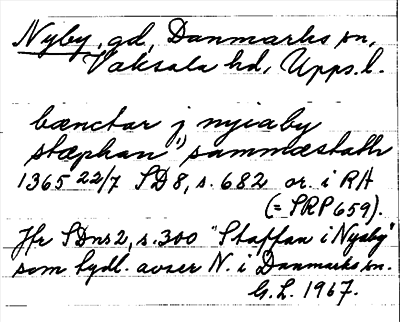 Nyby, gd, Danmarks sn,
Vaksala hd, Upps. l.
bænctar j nyiaby
stæphan¹) sammæstath
1365 22/7 SD 8, s. 682 or. i RA
(= SRP 659).
Jfr SDns 2, s. 300 "Staffan i Nyaby"
som tydl. avser N. i Danmarks sn.
G. L. 1967.